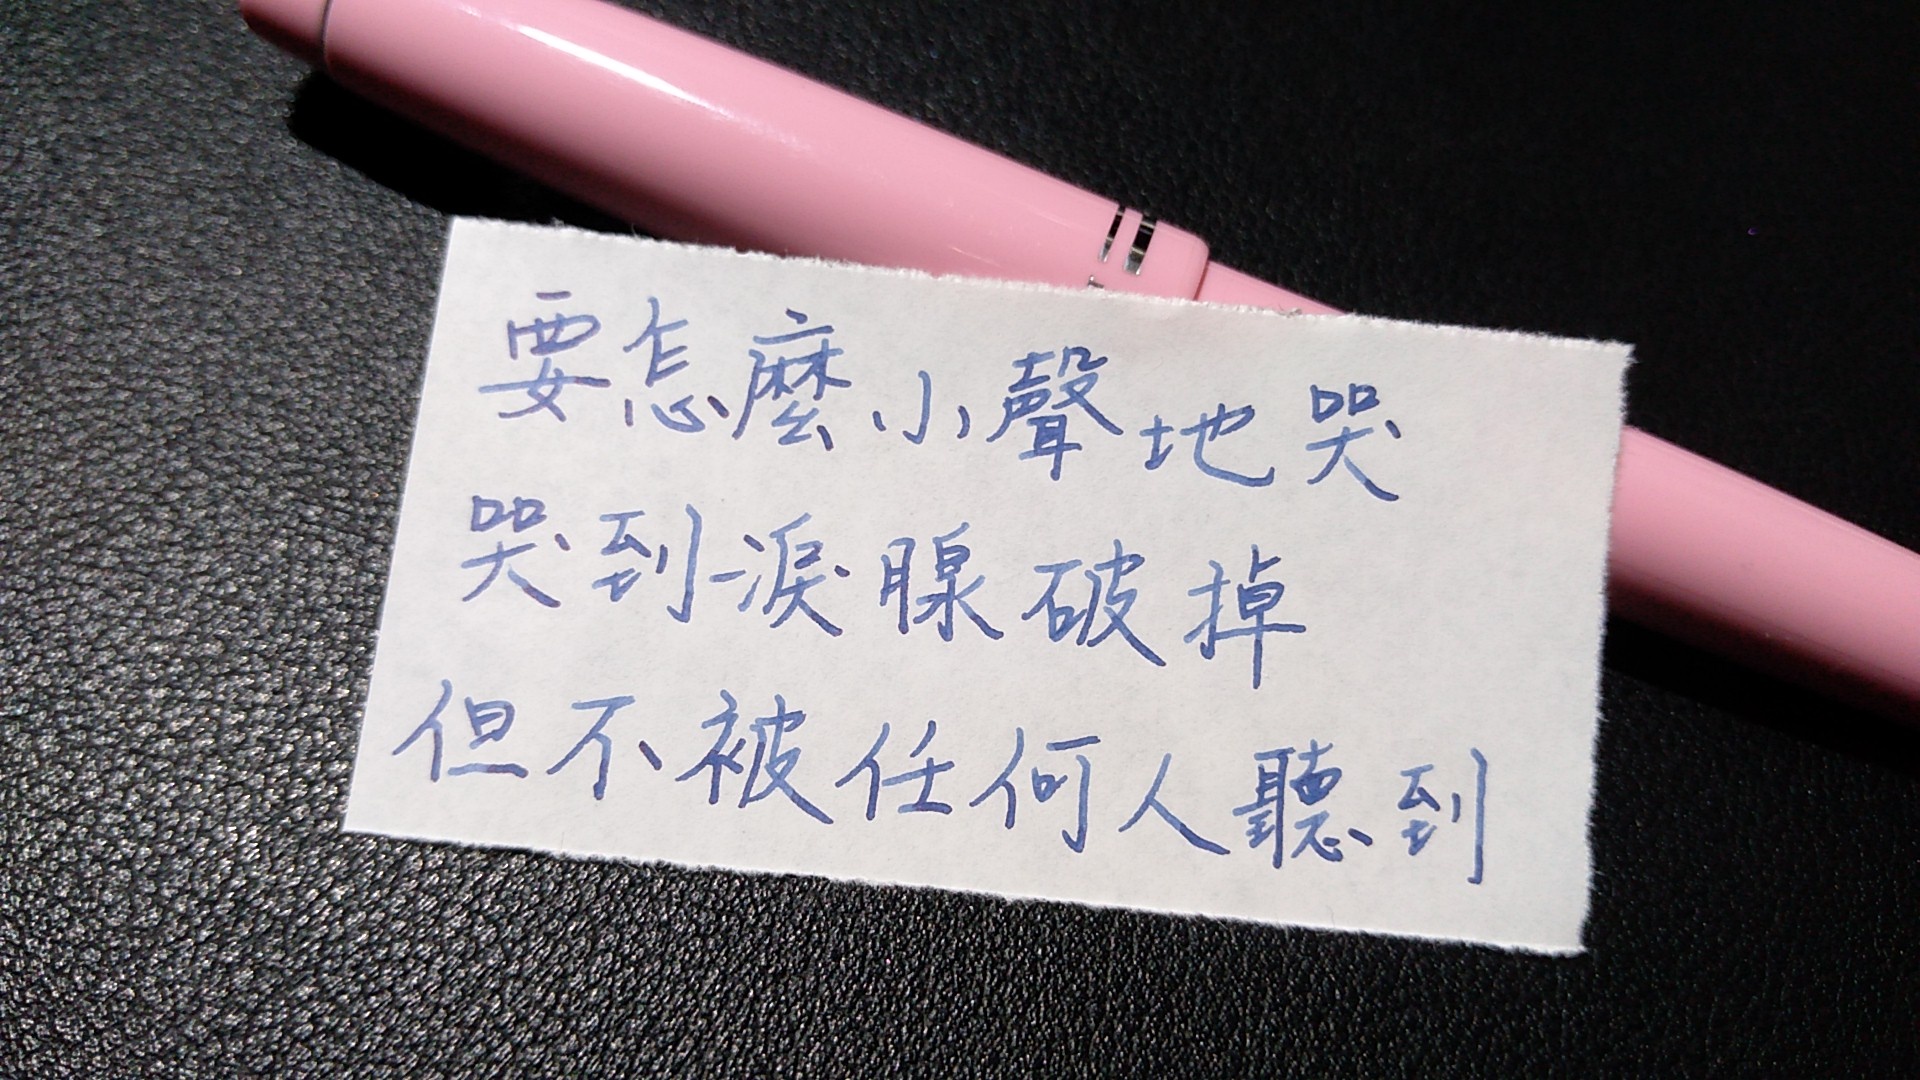 要怎麼小聲地哭
哭到淚腺破掉
但不被任何人聽到